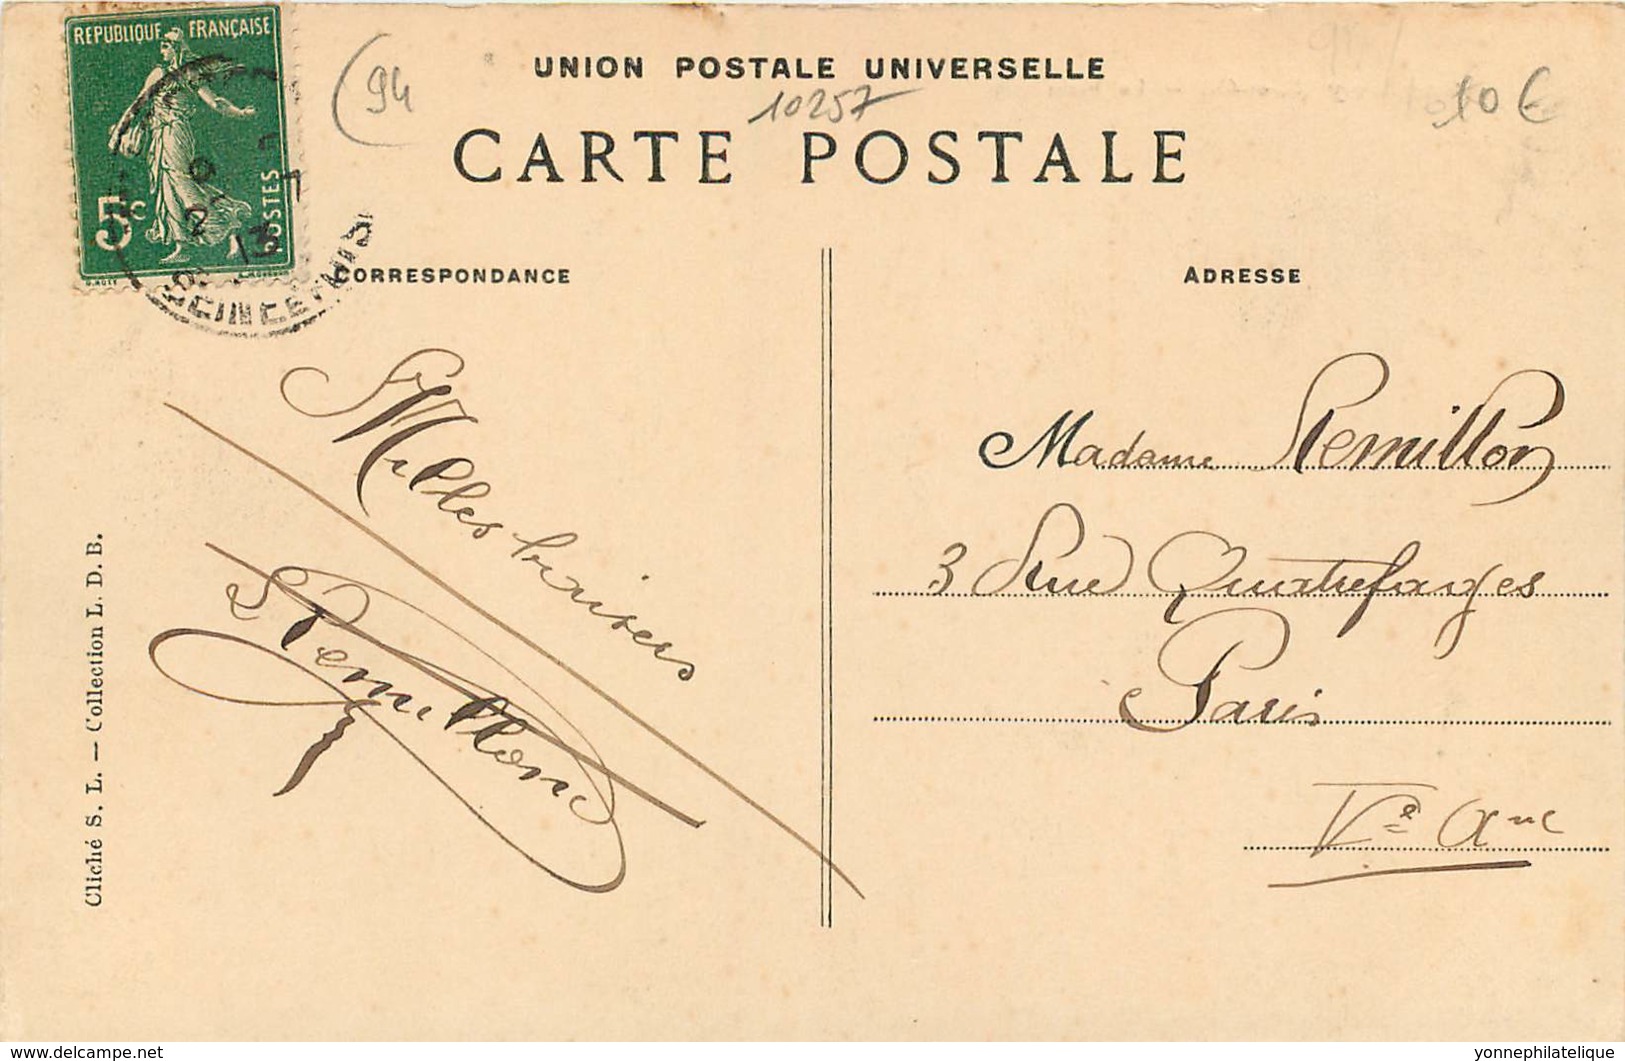 REPUBLIQUE FRANÇAISE
5c
POSTES
(94
UNION POSTALE UNIVERSELLE
10257
10 €
CARTE POSTALE
CORRESPONDANCE
ADRESSE
Milles baisers
Remillon
Madame Remillon
3 Rue Quatrefages
Paris
Ve Arrc
Cliché S. L. — Collection L. D. B.
www.delcampe.net
yonnephilatelique